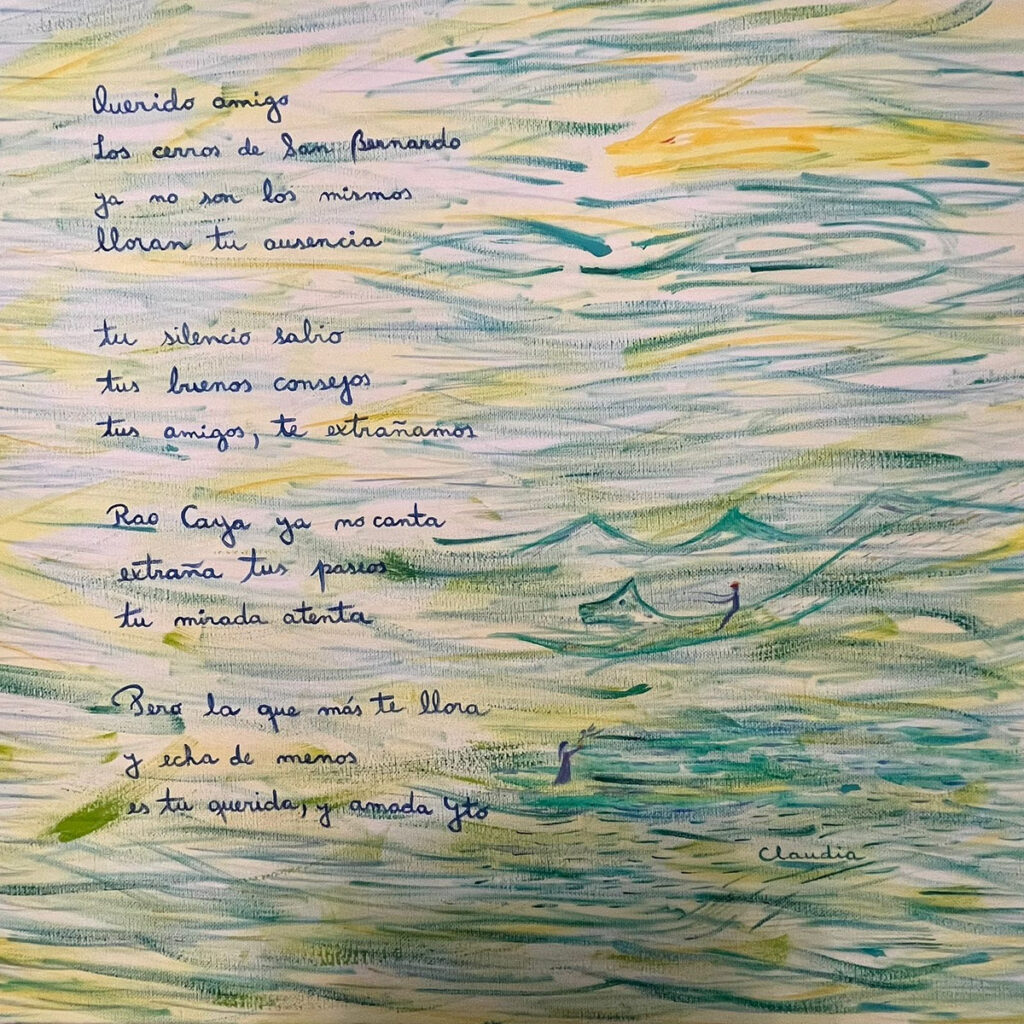 Querido amigo
Los cerros de San Bernardo
ya no son los mismos
lloran tu ausencia
tu silencio sabio
tus buenos consejos
tus amigos, te extrañamos
Rao Caya ya no canta
extraña tus paseos
tu mirada atenta
Pero la que más te llora
y echa de menos
es tu querida, y amada Yto
Claudia